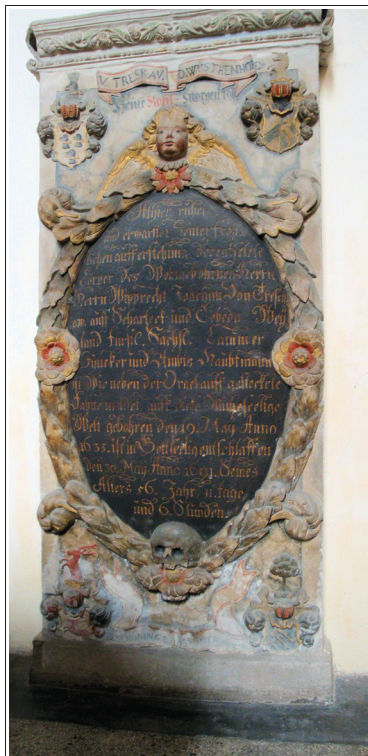 V. TRESKAV.
Alhier ruhet
und erwartet seiner fröh-
lichen aufferstehung der entselete
Cörper des Wohlgebohrnen Herrn
Herrn Wiprecht Joachim Von Tresk-
auf Scharfeet und Weÿ-
land Fürstl. Sachs. Cammer
Juncker und Ambts Haubtmann
wie neben der Orgel auff gesteckete
Fahne meldet auff diese
Welt gebohren den 19. Maÿ Anno
1635. ist in Gott seelig entschlaffen
den 30. Maÿ Anno 1691. Seines
Alters 56. Jahr, 11. tage,
und 6. Stunden.